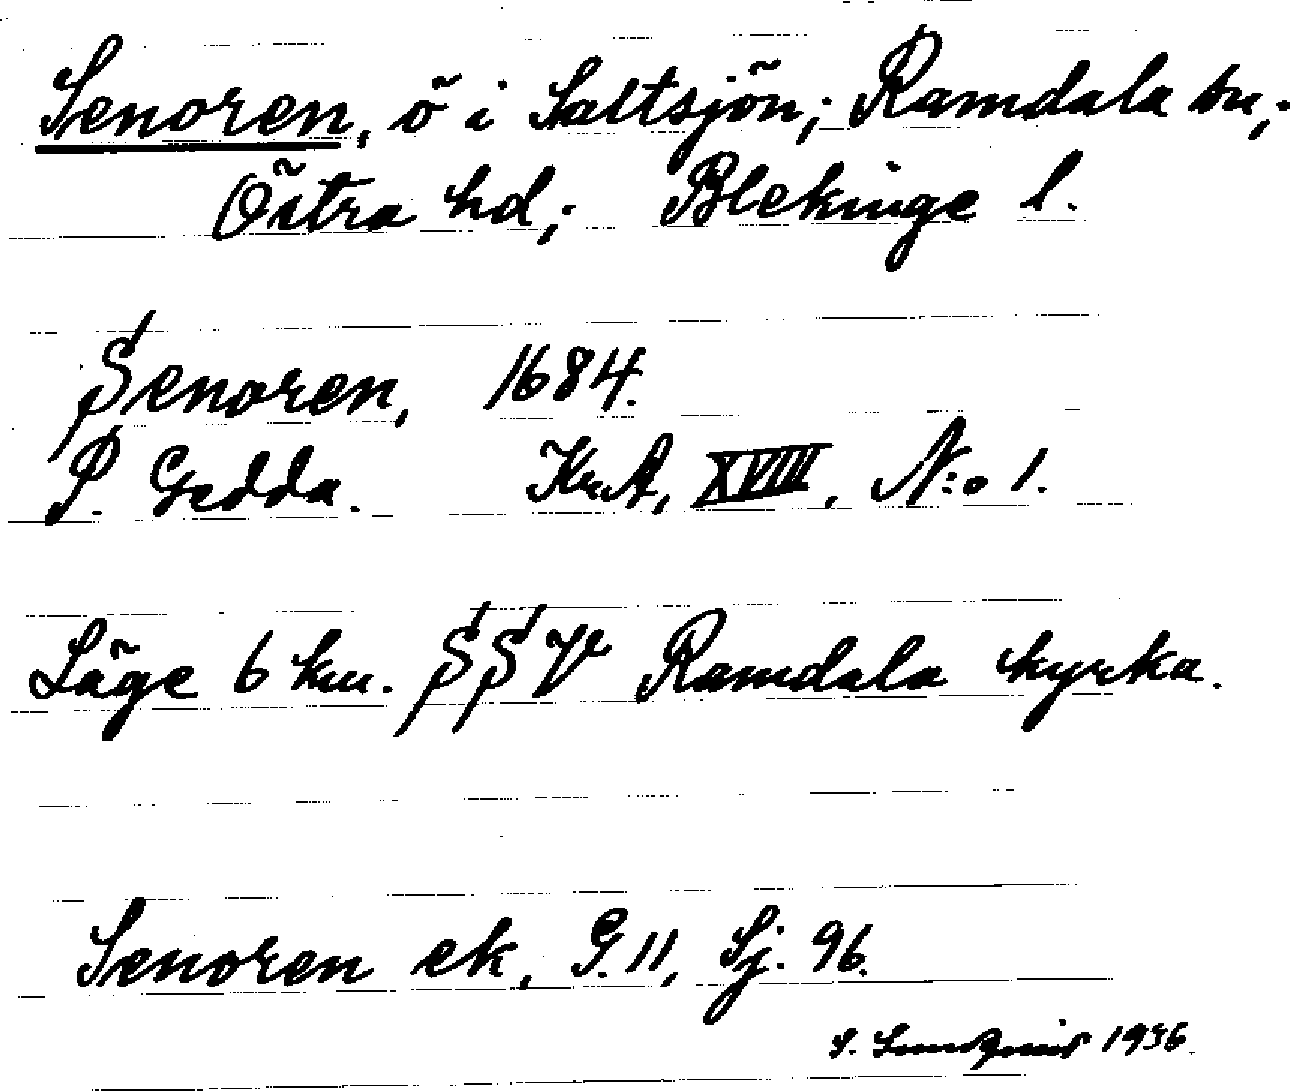 Senoren, ö i Saltsjön; Ramdala sn;
Östra hd; Blekinge l.
Senoren, 1684.
P. Gedda. Kr.A, XVIII, N:o 1.
Läge 6 km. SSV Ramdala kyrka.
Senoren ek, G. 11, Sj. 96.
S. 1936